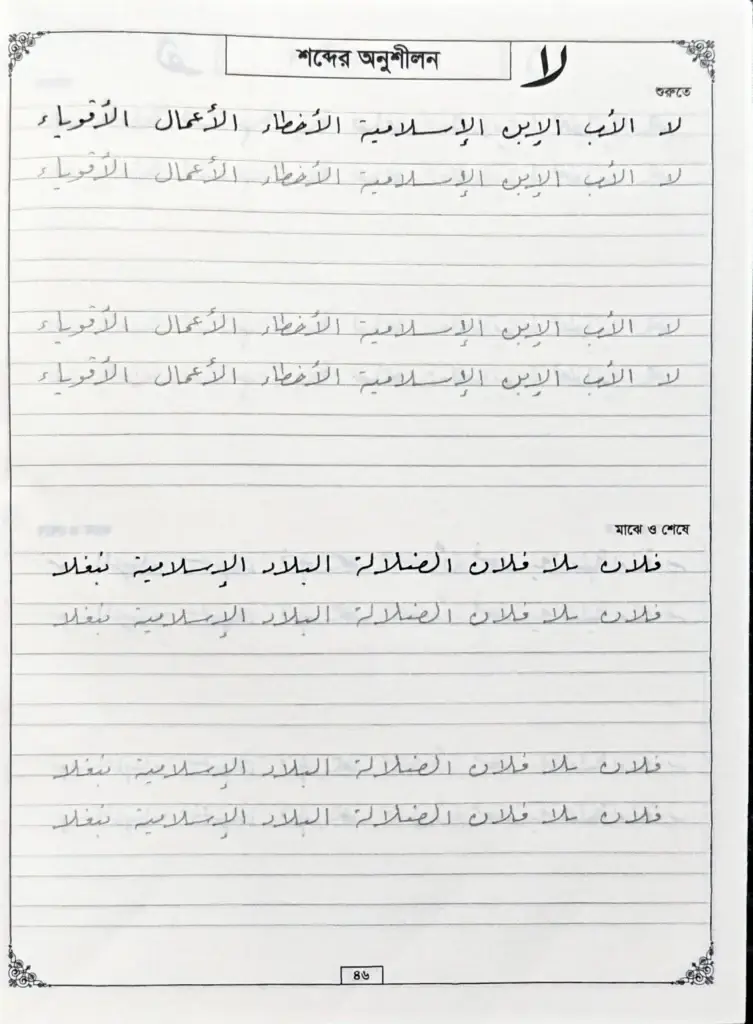 শব্দের অনুশীলন لا
শুরুতে
لا الأب الإبن الإسلامية الأخطاء الأعمال الأقوياء
لا الأب الإبن الإسلامية الأخطاء الأعمال الأقوياء
لا الأب الإبن الإسلامية الأخطاء الأعمال الأقوياء
لا الأب الإبن الإسلامية الأخطاء الأعمال الأقوياء
মাঝে ও শেষে
فلان بلا فلان الضلالة البلاد الإسلامية
فلان بلا فلان الضلالة البلاد الإسلامية
فلان بلا فلان الضلالة البلاد الإسلامية
فلان بلا فلان الضلالة البلاد الإسلامية
৪৬